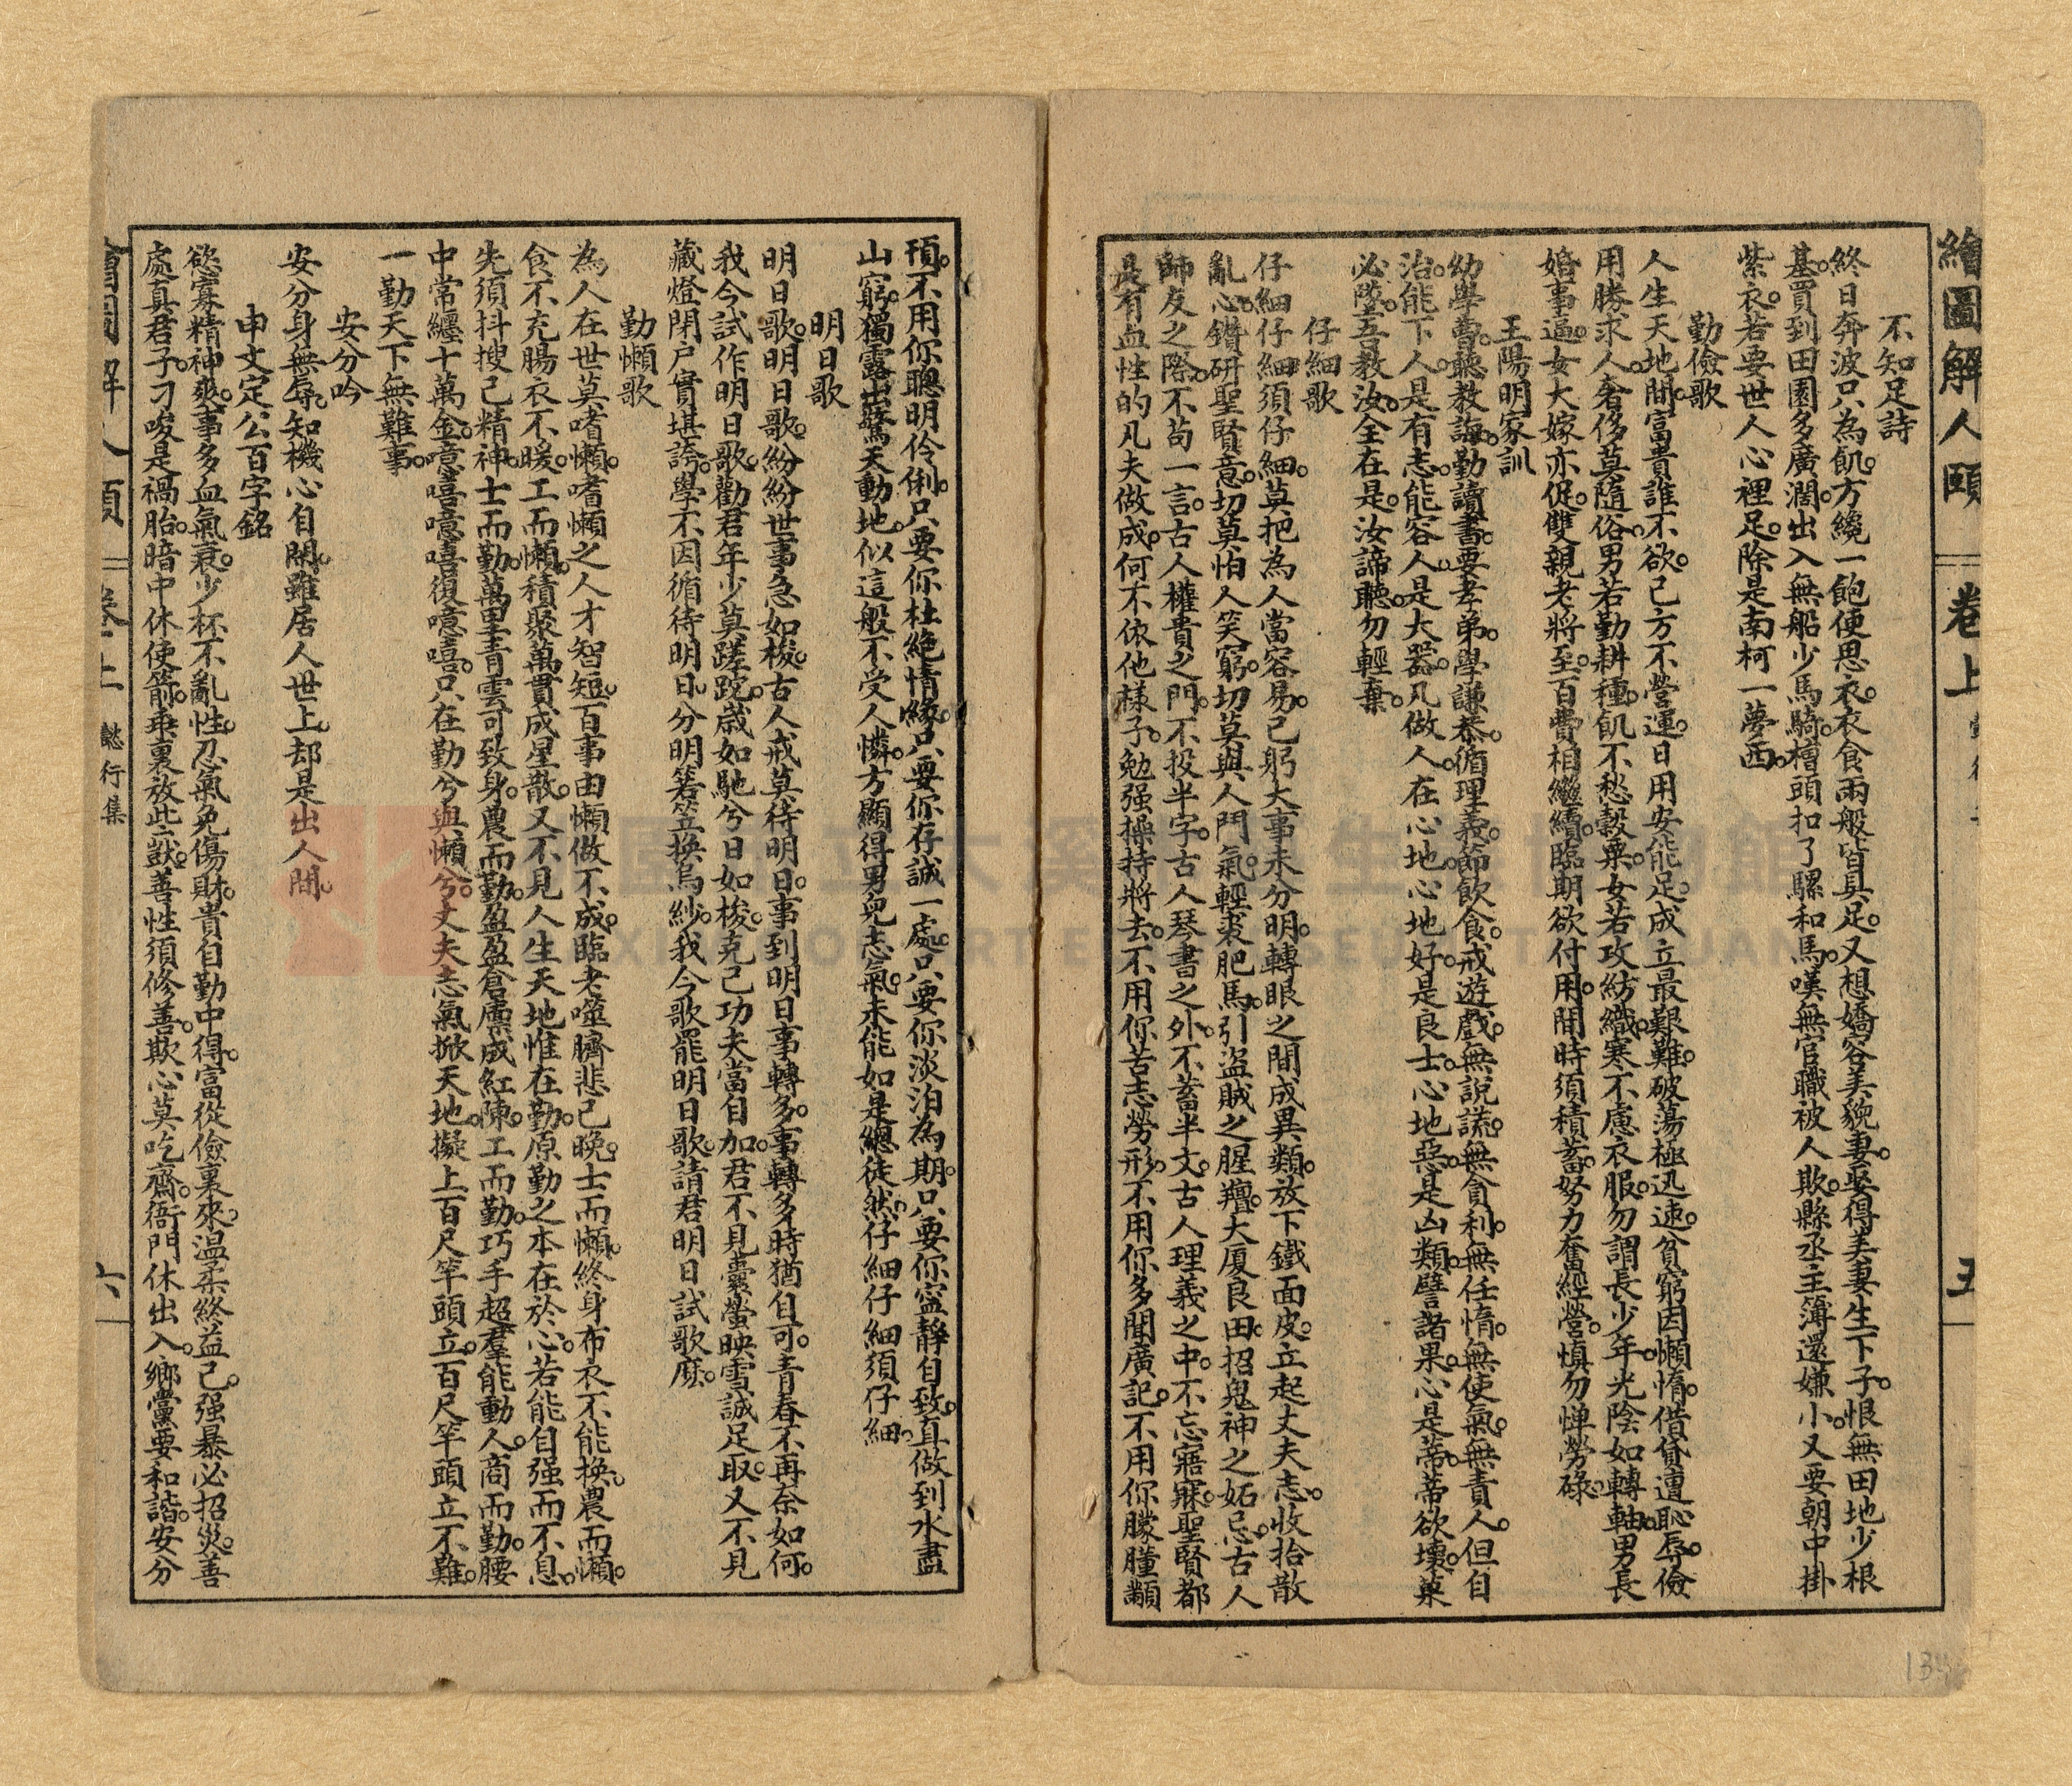 繪圖解人頤
卷上
五
不知足詩
終日奔波只為飢。方纔一飽便思衣。衣食兩般皆具足。又想嬌容美貌妻。娶得美妻生下子。恨無田地少根
基。買到田園多廣濶。出入無船少馬騎。槽頭扣了騾和馬。嘆無官職被人欺。縣丞主簿還嫌小。又要朝中掛
紫衣。若要世人心裡足。除是南柯一夢西。
勤儉歌
人生天地間。富貴誰不欲。己方不營運。日用安能足。成立最艱難。破蕩極迅速。貧窮因懶惰。借貸遭恥辱。儉
用勝求人。奢侈莫隨俗。男若勤耕種。飢不愁穀粟。女若攻紡織。寒不慮衣服。勿謂長少年。光陰如轉軸。男長
婚事逼。女大嫁亦促。雙親老將至。百費相繼續。臨期欲付用。間時須積蓄。努力奮經營。慎勿憚勞碌。
王陽明家訓
幼學曹。聽教誨。勤讀書。要孝弟。學謙恭。循理義。節飲食。戒遊戲。無說謊。無貪利。無任惰。無使氣。無責人。但自
治。能下人。是有志。能容人。是大器。凡做人。在心地。心地好。是良士。心地惡。是凶類。譬諸果。心是蒂。蒂欲壞。菓
必墜。吾教汝。全在是。汝諦聽。勿輕棄。
仔細歌
仔細仔細須仔細。莫把為人當容易。己躬大事未分明。轉眼之間成異類。放下鐵面皮。立起丈夫志。收拾散
亂心。鑽研聖賢意。切莫怕人笑窮。切莫與人鬥氣。輕裘肥馬。引盜賊之腥羶。大厦良田。招鬼神之妬忌。古人
師友之際。不苟一言。古人權貴之門。不投半字。古人琴書之外。不蓄半文。古人理義之中。不忘寤寐。聖賢都
是有血性的凡夫做成。何不依他樣子。勉强操持將去。不用你苦志勞形。不用你多聞廣記。不用你朦朣顢
頇。不用你聰明伶俐。只要你杜絶情緣。只要你存誠一處。只要你淡泊為期。只要你寍靜自致。直做到水盡
山窮。獨露出驚天動地。似這般不受人憐。方顯得男兒志氣。未能如是總徒然。仔細仔細須仔細。
明日歌
明日歌。明日歌。紛紛世事急如梭。古人戒莫待明日。事到明日事轉多。事轉多時猶自可。青春不再奈如何。
我今試作明日歌。勸君年少莫蹉跎。歲如馳兮日如梭。克己功夫當自加。君不見囊螢映雪誠足取。又不見
藏燈閉户實堪誇。學不因循待明日。分明箬笠換烏紗。我今歌罷明日歌。請君明日試歌麽。
勤懶歌
為人在世莫嗜懶。嗜懶之人才智短。百事由懶做不成。臨老噬臍悲已晚。士而懶。終身布衣不能換。農而懶。
食不充腸衣不暖。工而懶。積聚萬貫成星散。又不見人生天地惟在勤。原勤之本在於心。若能自强而不息。
先須抖擻己精神。士而勤。萬里青雲可致身。農而勤。盈盈倉廪成紅陳。工而勤。巧手超羣能動人。商而勤。腰
中常纏十萬金。噫嘻噫嘻復噫嘻。只在勤兮與懶兮。丈夫志氣掀天地。擬上百尺竿頭立。百尺竿頭立不難。
一勤天下無難事。
安分吟
安分身無辱。知機心自閒。雖居人世上。却是出人間。
申文定公百字銘
慾寡精神爽。事多血氣衰。少杯不亂性。忍氣免傷財。貴自勤中得。富從儉裏來。温柔終益己。强暴必招災。善
處真君子。刁唆是禍胎。暗中休使箭。乖裏放些獃。善性須修善。欺心莫吃齋。衙門休出入。鄉黨要和諧。安分
繪圖解人頤
卷上
懿行集
六